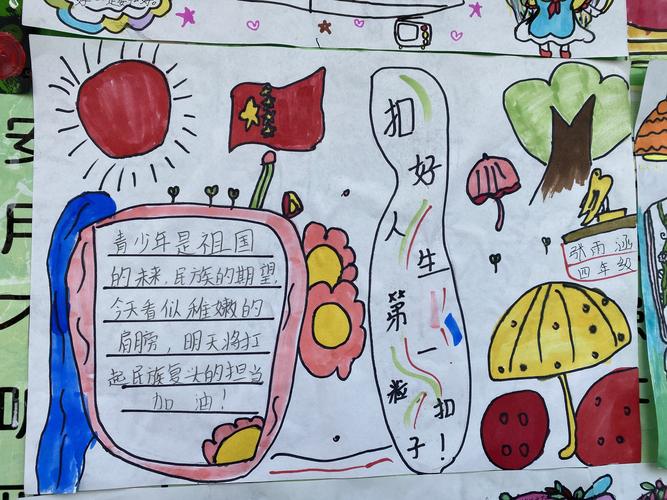 扣好人生第一粒扣子!
青少年是祖国
的未来,民族的期望,
今天看似稚嫩的
肩膀,明天将扛
起民族复兴的担当
加油!
张雨涵
四年级
月
明